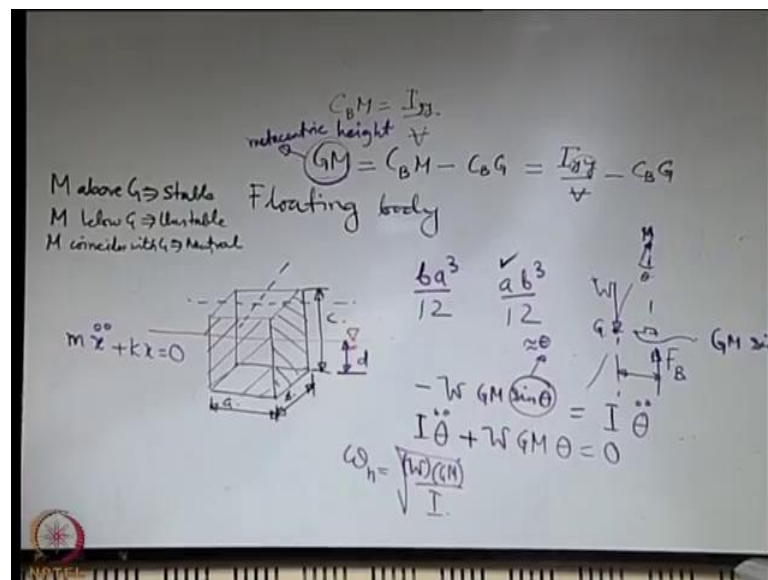 C_B M = I_yy / ∀
metacentric height
GM = C_B M − C_B G = I_yy / ∀ − C_B G
M above G ⇒ Stable
M below G ⇒ Unstable
M coincides with G ⇒ Neutral
Floating body
ba³ / 12
✓ ab³ / 12
m ẍ + kx = 0
a
b
c
d
M
θ
W
G
GM sin
F_B
≈θ
−W GM sin θ = I θ̈
I θ̈ + W GM θ = 0
ω_n = √((W)(GM) / I)
NPTEL